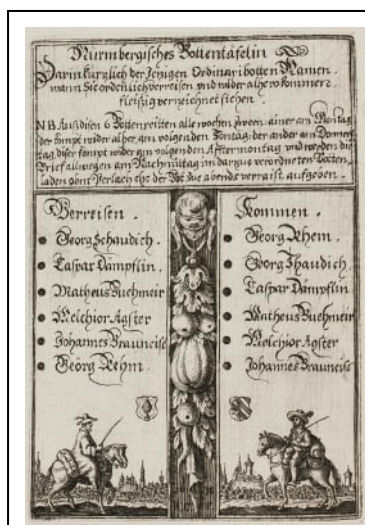 Nurmbergisches Bottentäfelin
Darin kurzlich der Jezigen Ordinari botten Namen.
wann Sie ordenlich verreisen, und wider alher kommen.
fleißig verzeichnet stehen.
NB Auß disen 6 Botten reitten alle wochen, zween, ainer am Montag
der kompt wider alher, am volgenden Sontag: der ander am Donners
tag diser kompt wider am volgenden Aftermontag, und werden die
Brief allwegen am Nachmittag im darzue verordneten Botten
laden
Verreisen.
Georg Schaudich.
Caspar Dampflin.
Matheus Buehmeir
Melchior Agster
Johannes Brauneise
Georg Rehm.
Kommen.
Georg Rhem.
Georg Schaudich.
Caspar Dampflin.
Matheus Buehmeir
Melchior Agster
Johannes Brauneise